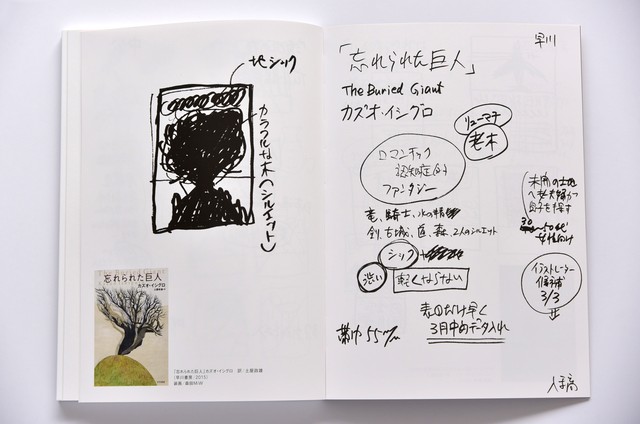 地シック
カラフルな木(シルエット)
忘れられた巨人
カズオ・イシグロ
『忘れられた巨人』カズオ・イシグロ 訳:土屋政雄
(早川書房:2015)
早川
「忘れられた巨人」
The Buried Giant
カズオ・イシグロ
リューマチ
老木
ロマンチック
認知症的
ファンタジー
竜、騎士、水の精
剣、古城、霧、森、2人のシルエット
未開の土地
へ老夫婦が
息子を探す
30
50代
女性向け
シック
渋い
軽くならない
イラストレーター
候補
3/3
表のだけ早く
3月中のデータ入れ
帯巾 55m/m
入稿